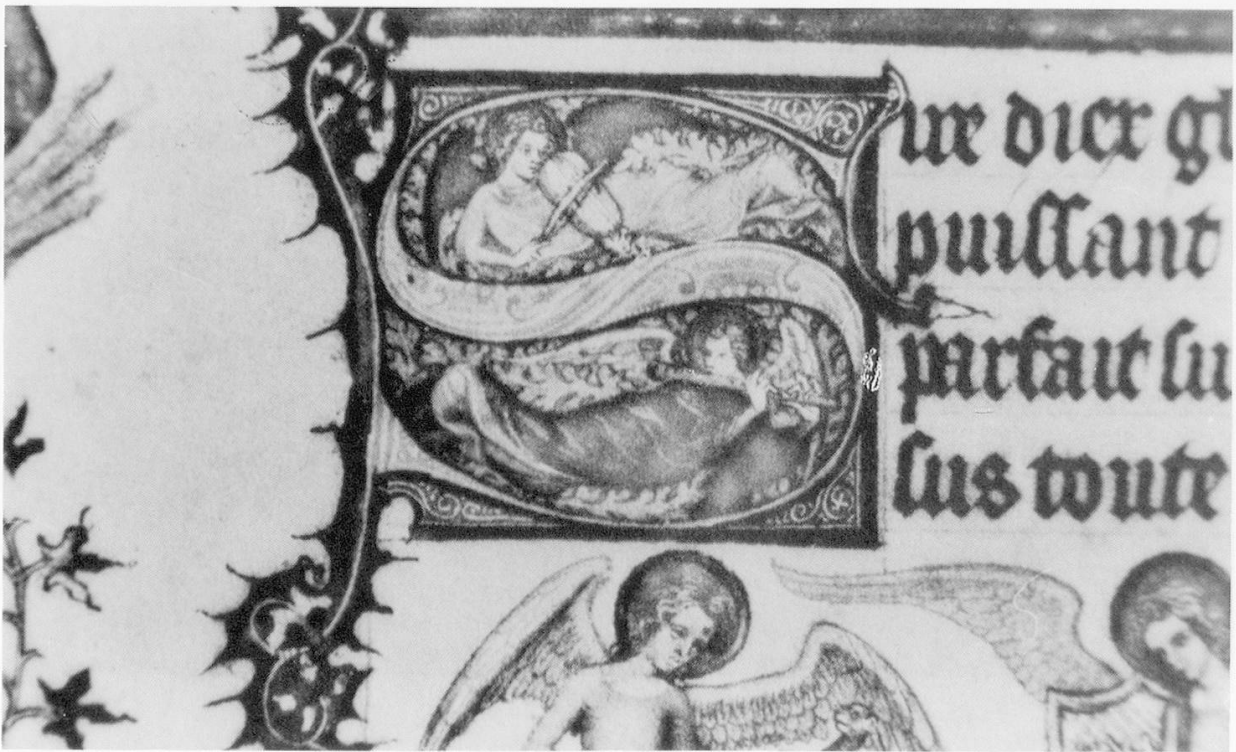 Sire diex gl
puissant
parfait su
sus toute